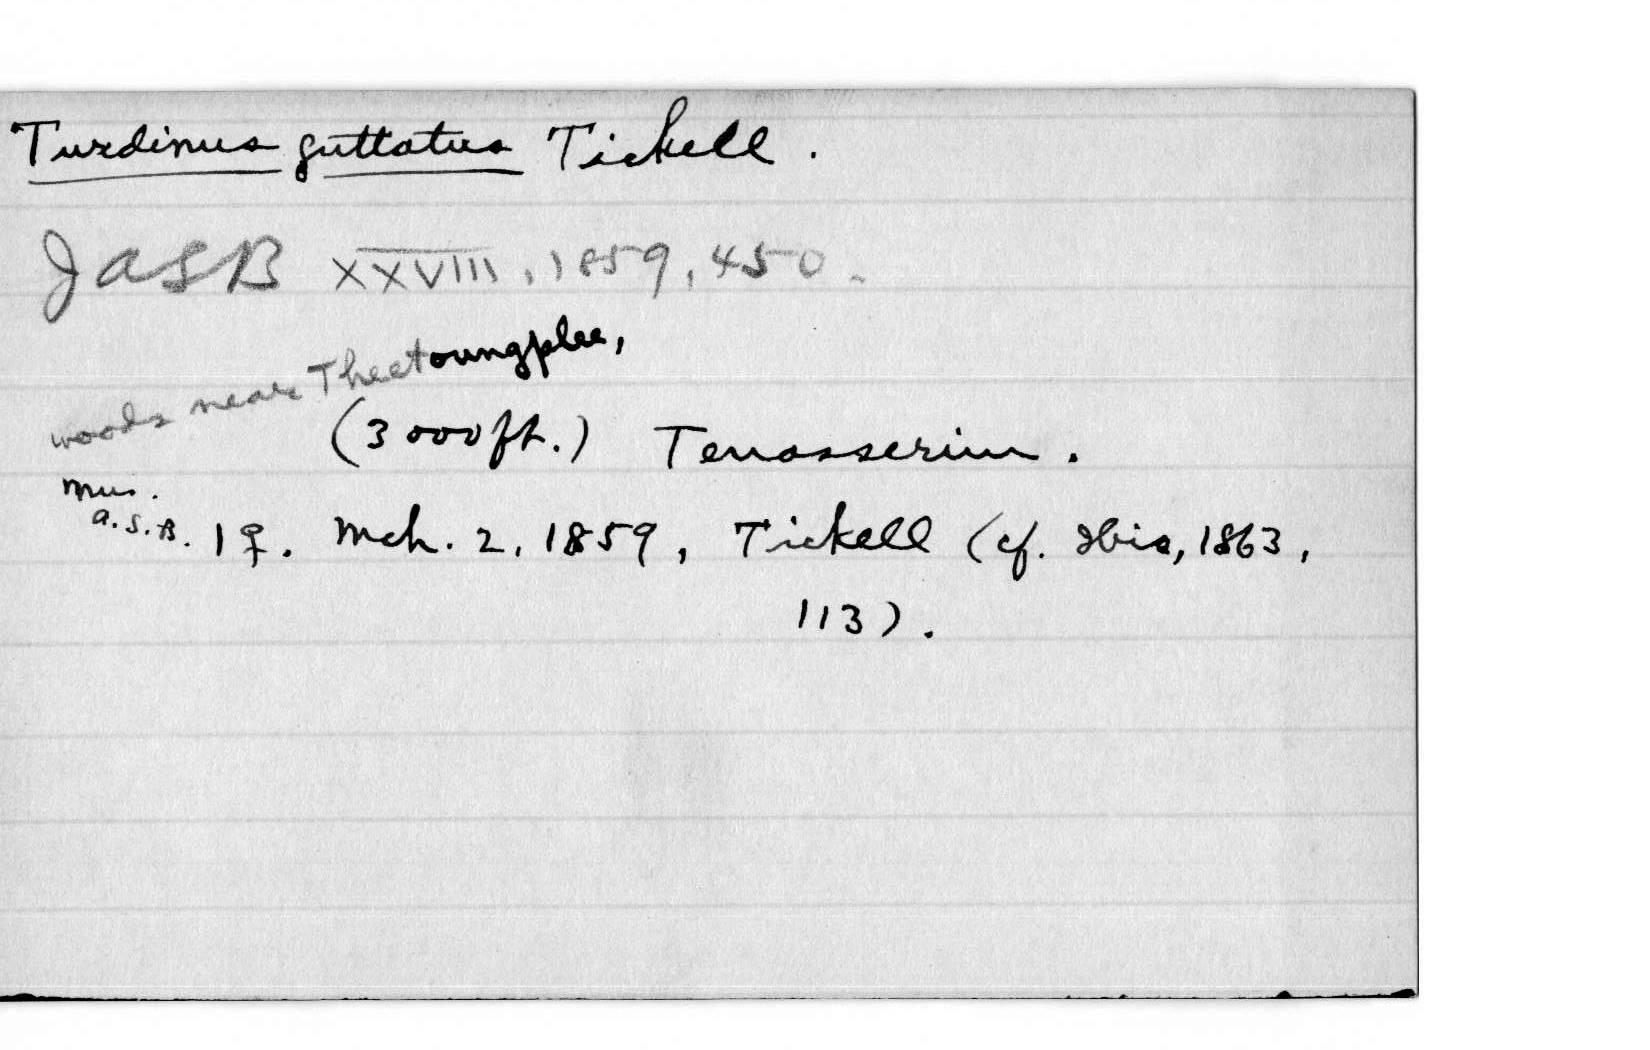 Turdinus guttatus Tickell.
JASB XXVIII, 1859, 450.
woods near Theetoungplee,
(3000 ft.) Tenasserim.
Mus.
A.S.B. 1 ♀. Mch. 2, 1859, Tickell (cf. Ibis, 1863,
113).